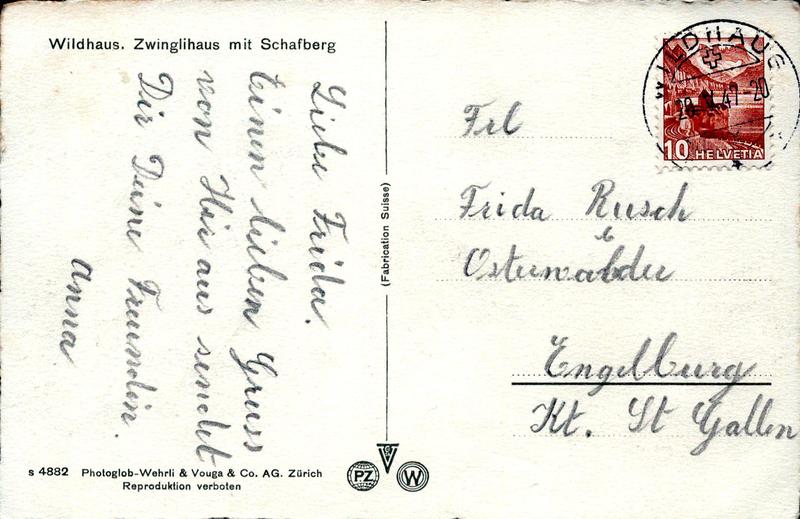 Wildhaus. Zwinglihaus mit Schafberg
Liebe Frida.
Einen lieben Gruss
von Hir aus sendet
Dir Deine Freundin.
Anna
(Fabrication Suisse)
WILDHAUS
10 HELVETIA
Frl
Frida Rusch
Osterwalder
Engelburg
Kt. St Gallen
s 4882 Photoglob-Wehrli & Vouga & Co. AG. Zürich
Reproduktion verboten
PZ
W